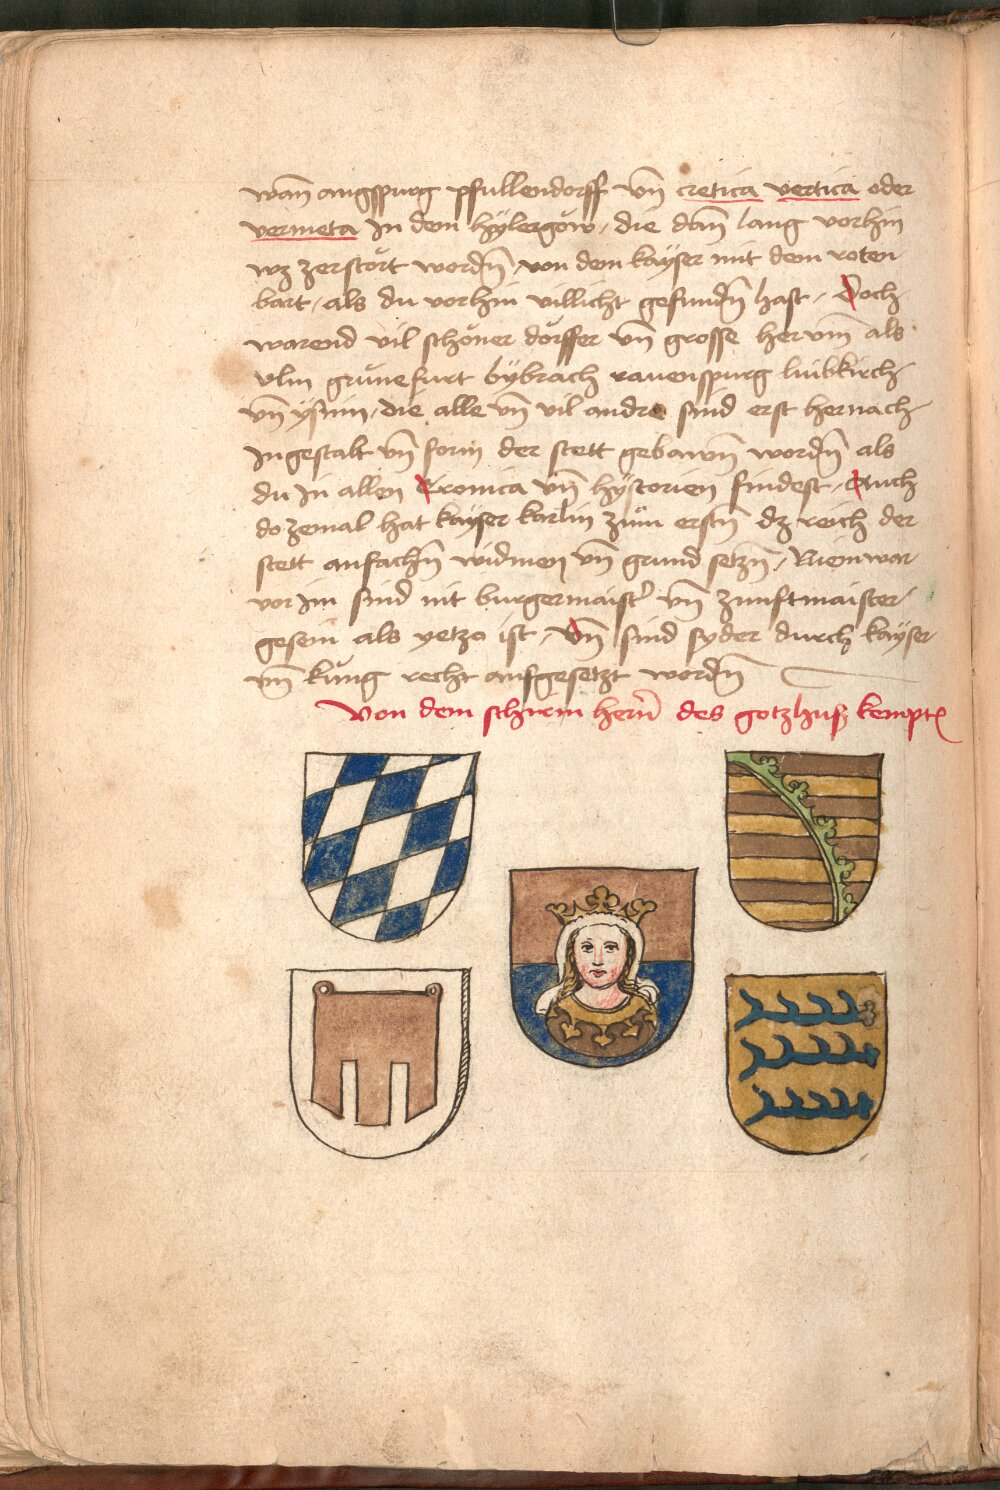 wan̄ augspurg pfullendorff vn̄ cretica vertica oder
vermeta Jn dem hÿlergöw / die dan̄ lang vorhin
wz zerstört wordn̄ / von dem kaÿser mit dem roten
bart / als du vorhin villicht gefundn̄ hast / Doch
warend vil schöner dörffer vn̄ grosse herum̄ als
vlm grünefurt bÿbrach rauenspurg lutkirch
vn̄ ysnin / die alle vn̄ vil andre sind erst hernach
Jn gestalt vn̄ form der stett gebawn̄ wordn̄ als
du Jn allen Cronica vn̄ hÿstorien findest / Auch
do zemal hat kayser karlin züm erstn̄ dz reich der
stett anfachn̄ widmen vn̄ grund setzn̄ / Niemwar
vor Jm sind nit burgermaist' vn̄ zunftmaister
gesein als yetzo ist / Vn̄ sind syder durch kaÿser
vn̄ küng recht aufgesetzt wordn̄
Von dem schirm hern̄ des gotzhuß kempt